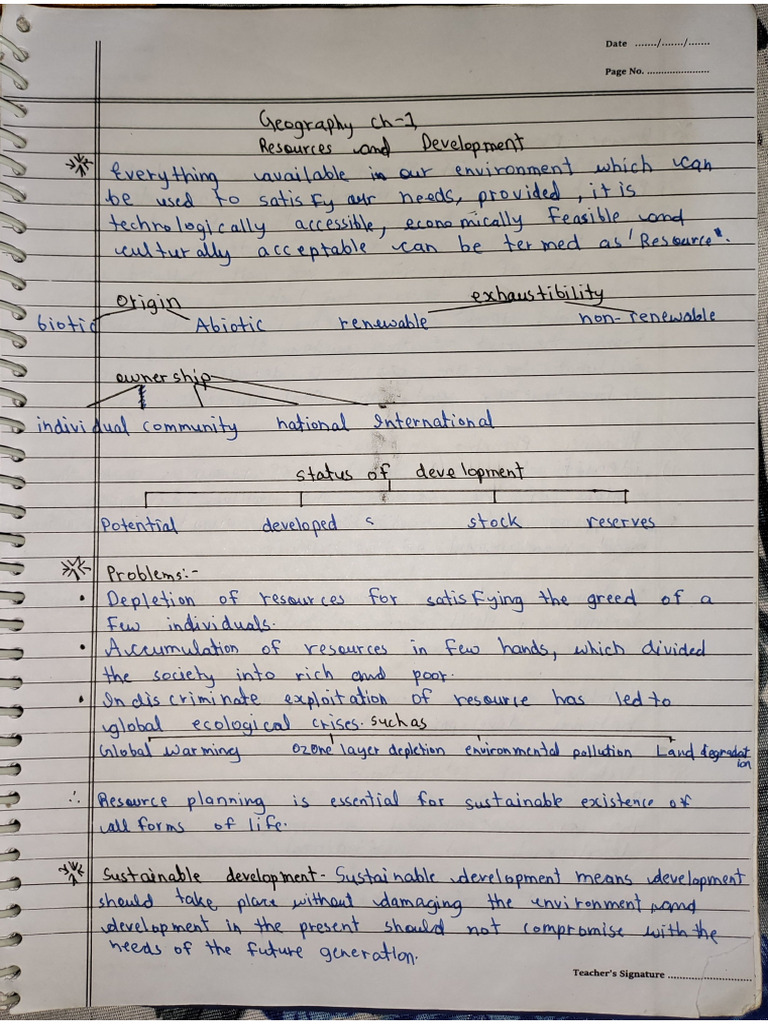 Date ......./......./.......
Page No. ......................
Geography ch-1
Resources and Development
Everything available in our environment which can
be used to satisfy our needs, provided, it is
technologically accessible, economically feasible and
culturally acceptable can be termed as 'Resource'.
origin exhaustibility
biotic Abiotic renewable non-renewable
ownership
individual community national International
status of development
Potential developed s stock reserves
Problems:-
• Depletion of resources for satisfying the greed of a
few individuals.
• Accumulation of resources in few hands, which divided
the society into rich and poor.
• Indiscriminate exploitation of resource has led to
global ecological crises. such as
Global warming ozone layer depletion environmental pollution Land degradat
ion
∴ Resource planning is essential for sustainable existence of
all forms of life.
Sustainable development - Sustainable development means development
should take place without damaging the environment, and
development in the present should not compromise with the
needs of the future generation.
Teacher's Signature ..............................